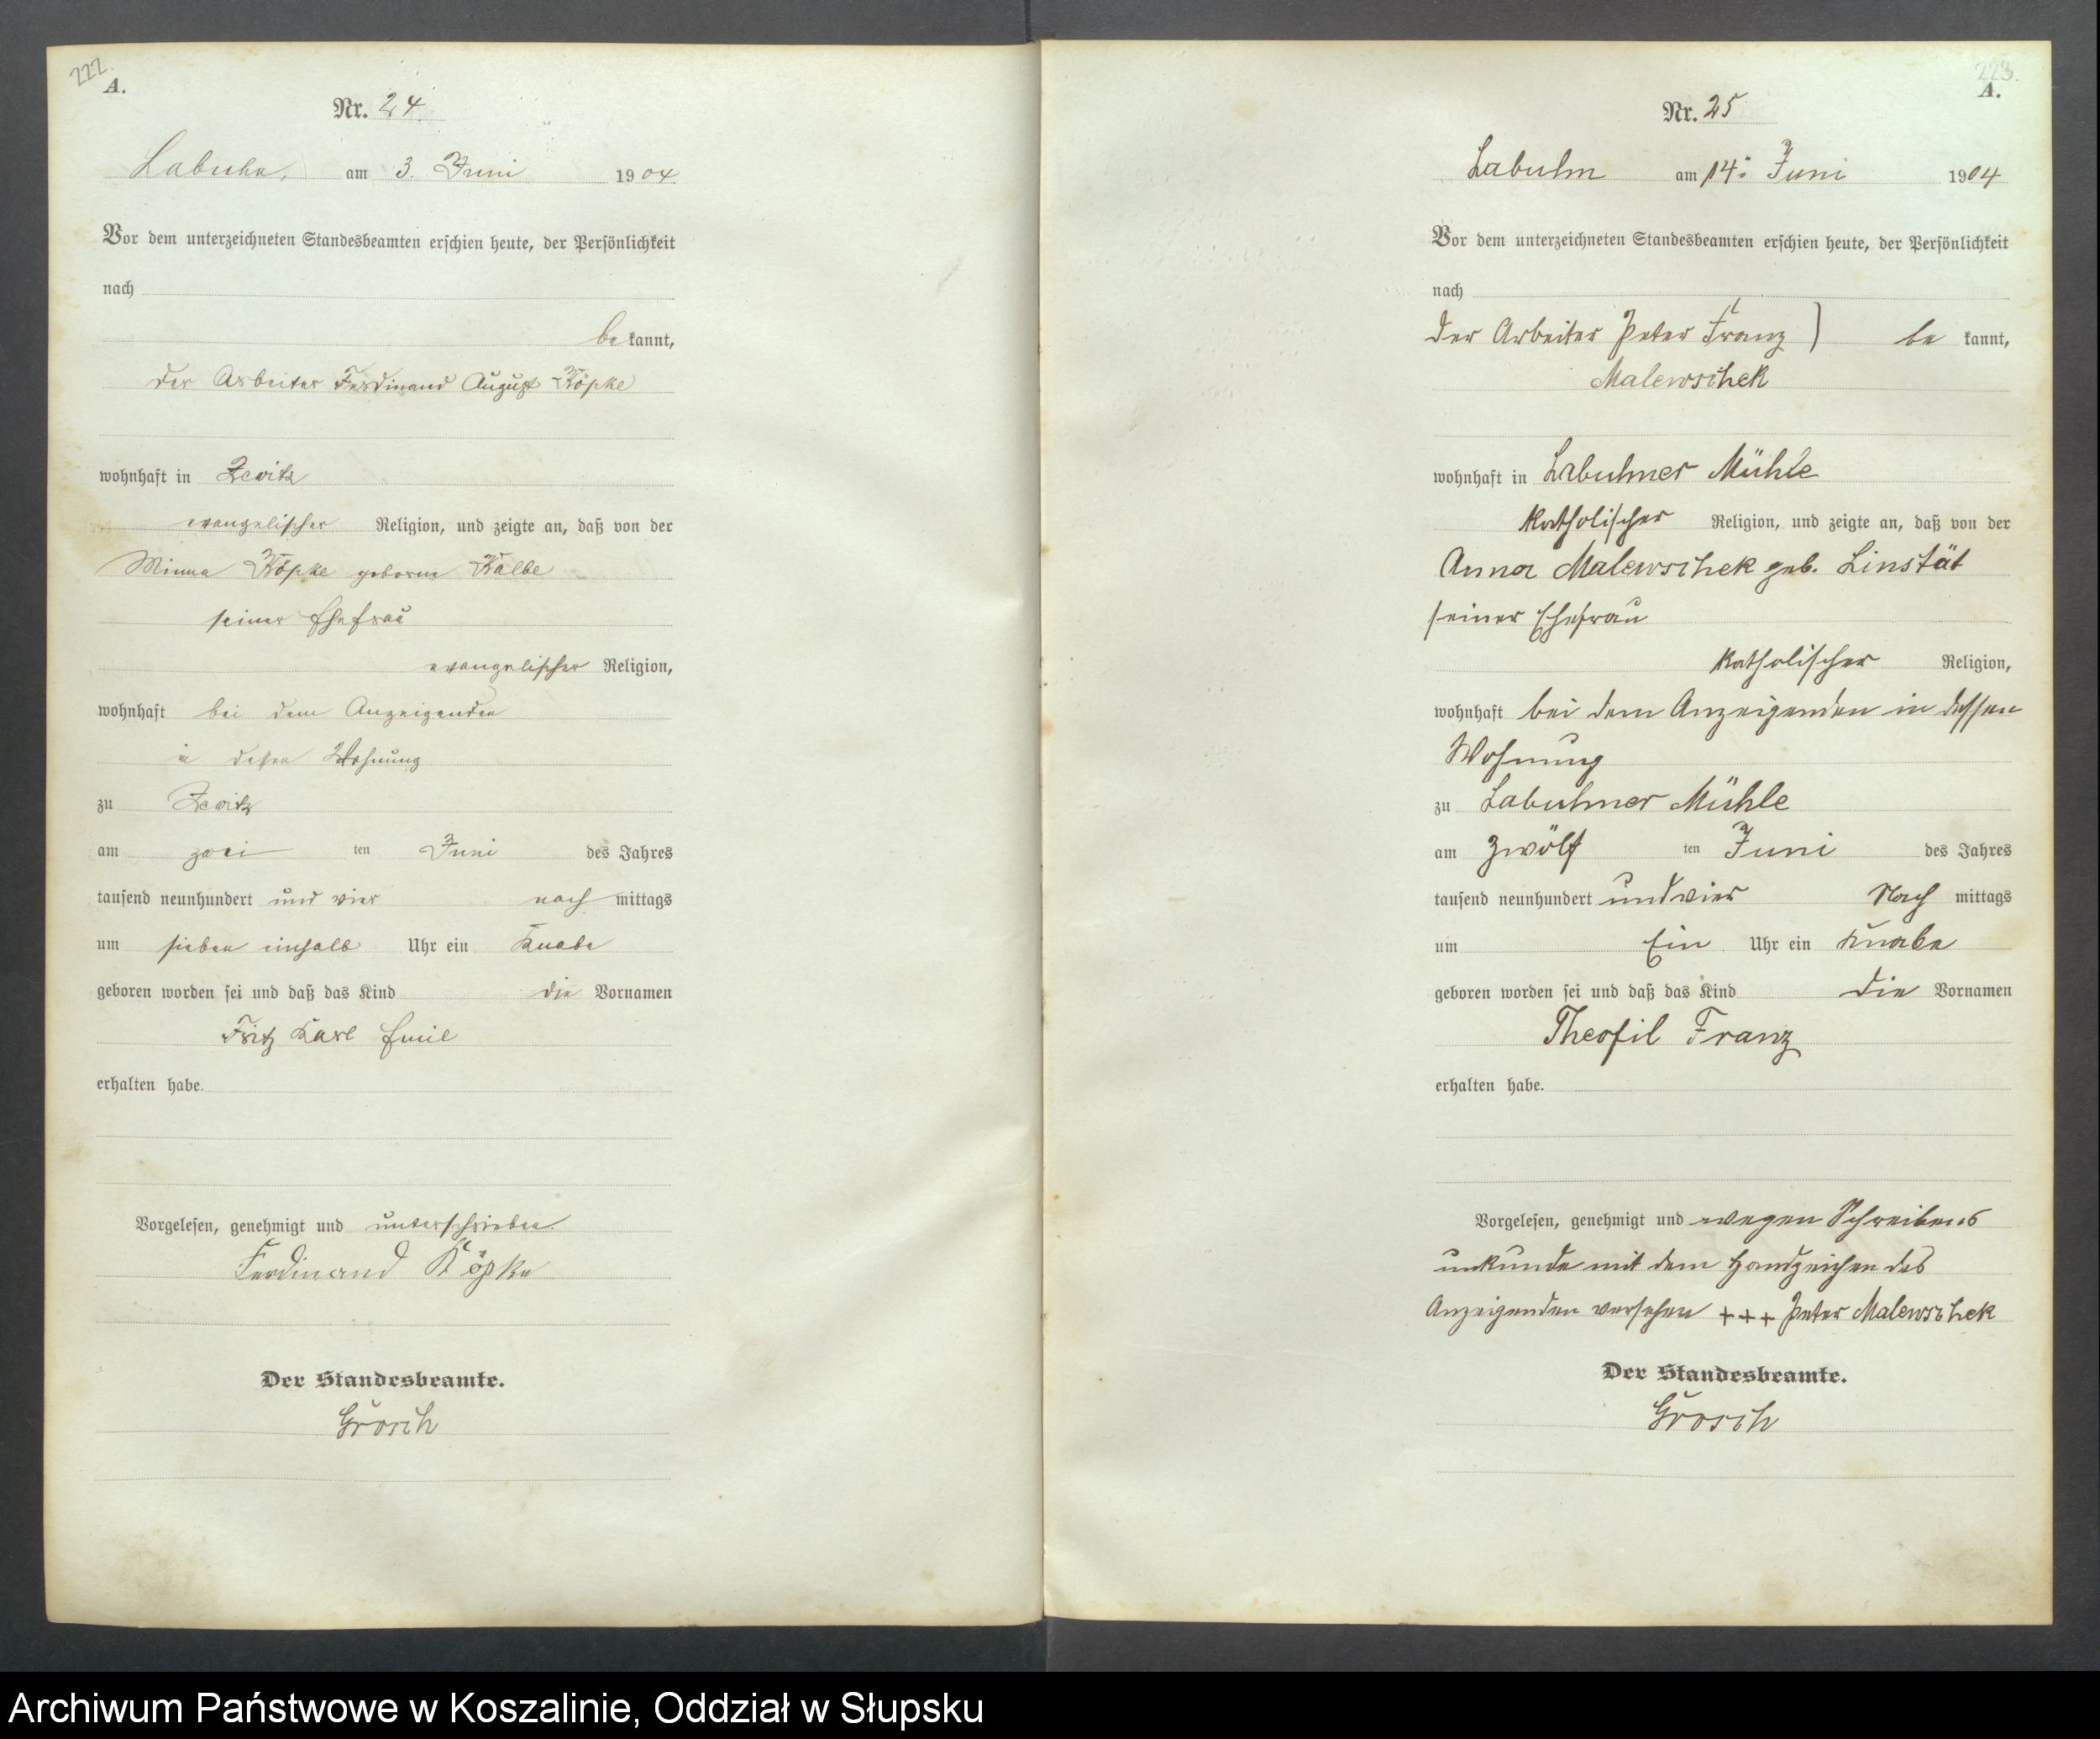 222.
A.
Nr. 24.
Labuhn, am 3. Juni 1904
Vor dem unterzeichneten Standesbeamten erschien heute, der Persönlichkeit
nach
be kannt,
der Arbeiter Ferdinand August Köpke
wohnhaft in Zewitz
evangelischer Religion, und zeigte an, daß von der
Minna Köpke geborne Kalbe
seiner Ehefrau
evangelischer Religion,
wohnhaft bei dem Anzeigenden
in dessen Wohnung
zu Zewitz
am zwei ten Juni des Jahres
tausend neunhundert und vier nach mittags
um sieben einhalb Uhr ein Knabe
geboren worden sei und daß das Kind die Vornamen
Fritz Karl Emil
erhalten habe.
Vorgelesen, genehmigt und unterschrieben.
Ferdinand Köpke
Der Standesbeamte.
Grosch
223.
A.
Nr. 25
Labuhn am 14. Juni 1904
Vor dem unterzeichneten Standesbeamten erschien heute, der Persönlichkeit
nach
der Arbeiter Peter Franz } be kannt,
Malewschek
wohnhaft in Labuhner Mühle
katholischer Religion, und zeigte an, daß von der
Anna Malewschek geb. Linstät
seiner Ehefrau
katholischer Religion,
wohnhaft bei dem Anzeigenden in dessen
Wohnung
zu Labuhner Mühle
am zwölf ten Juni des Jahres
tausend neunhundert und vier Nach mittags
um Ein Uhr ein Knabe
geboren worden sei und daß das Kind die Vornamen
Theofil Franz
erhalten habe.
Vorgelesen, genehmigt und wegen Schreibens
unkunde mit dem Handzeichen des
Anzeigenden versehen +++ Peter Malewschek
Der Standesbeamte.
Grosch
Archiwum Państwowe w Koszalinie, Oddział w Słupsku